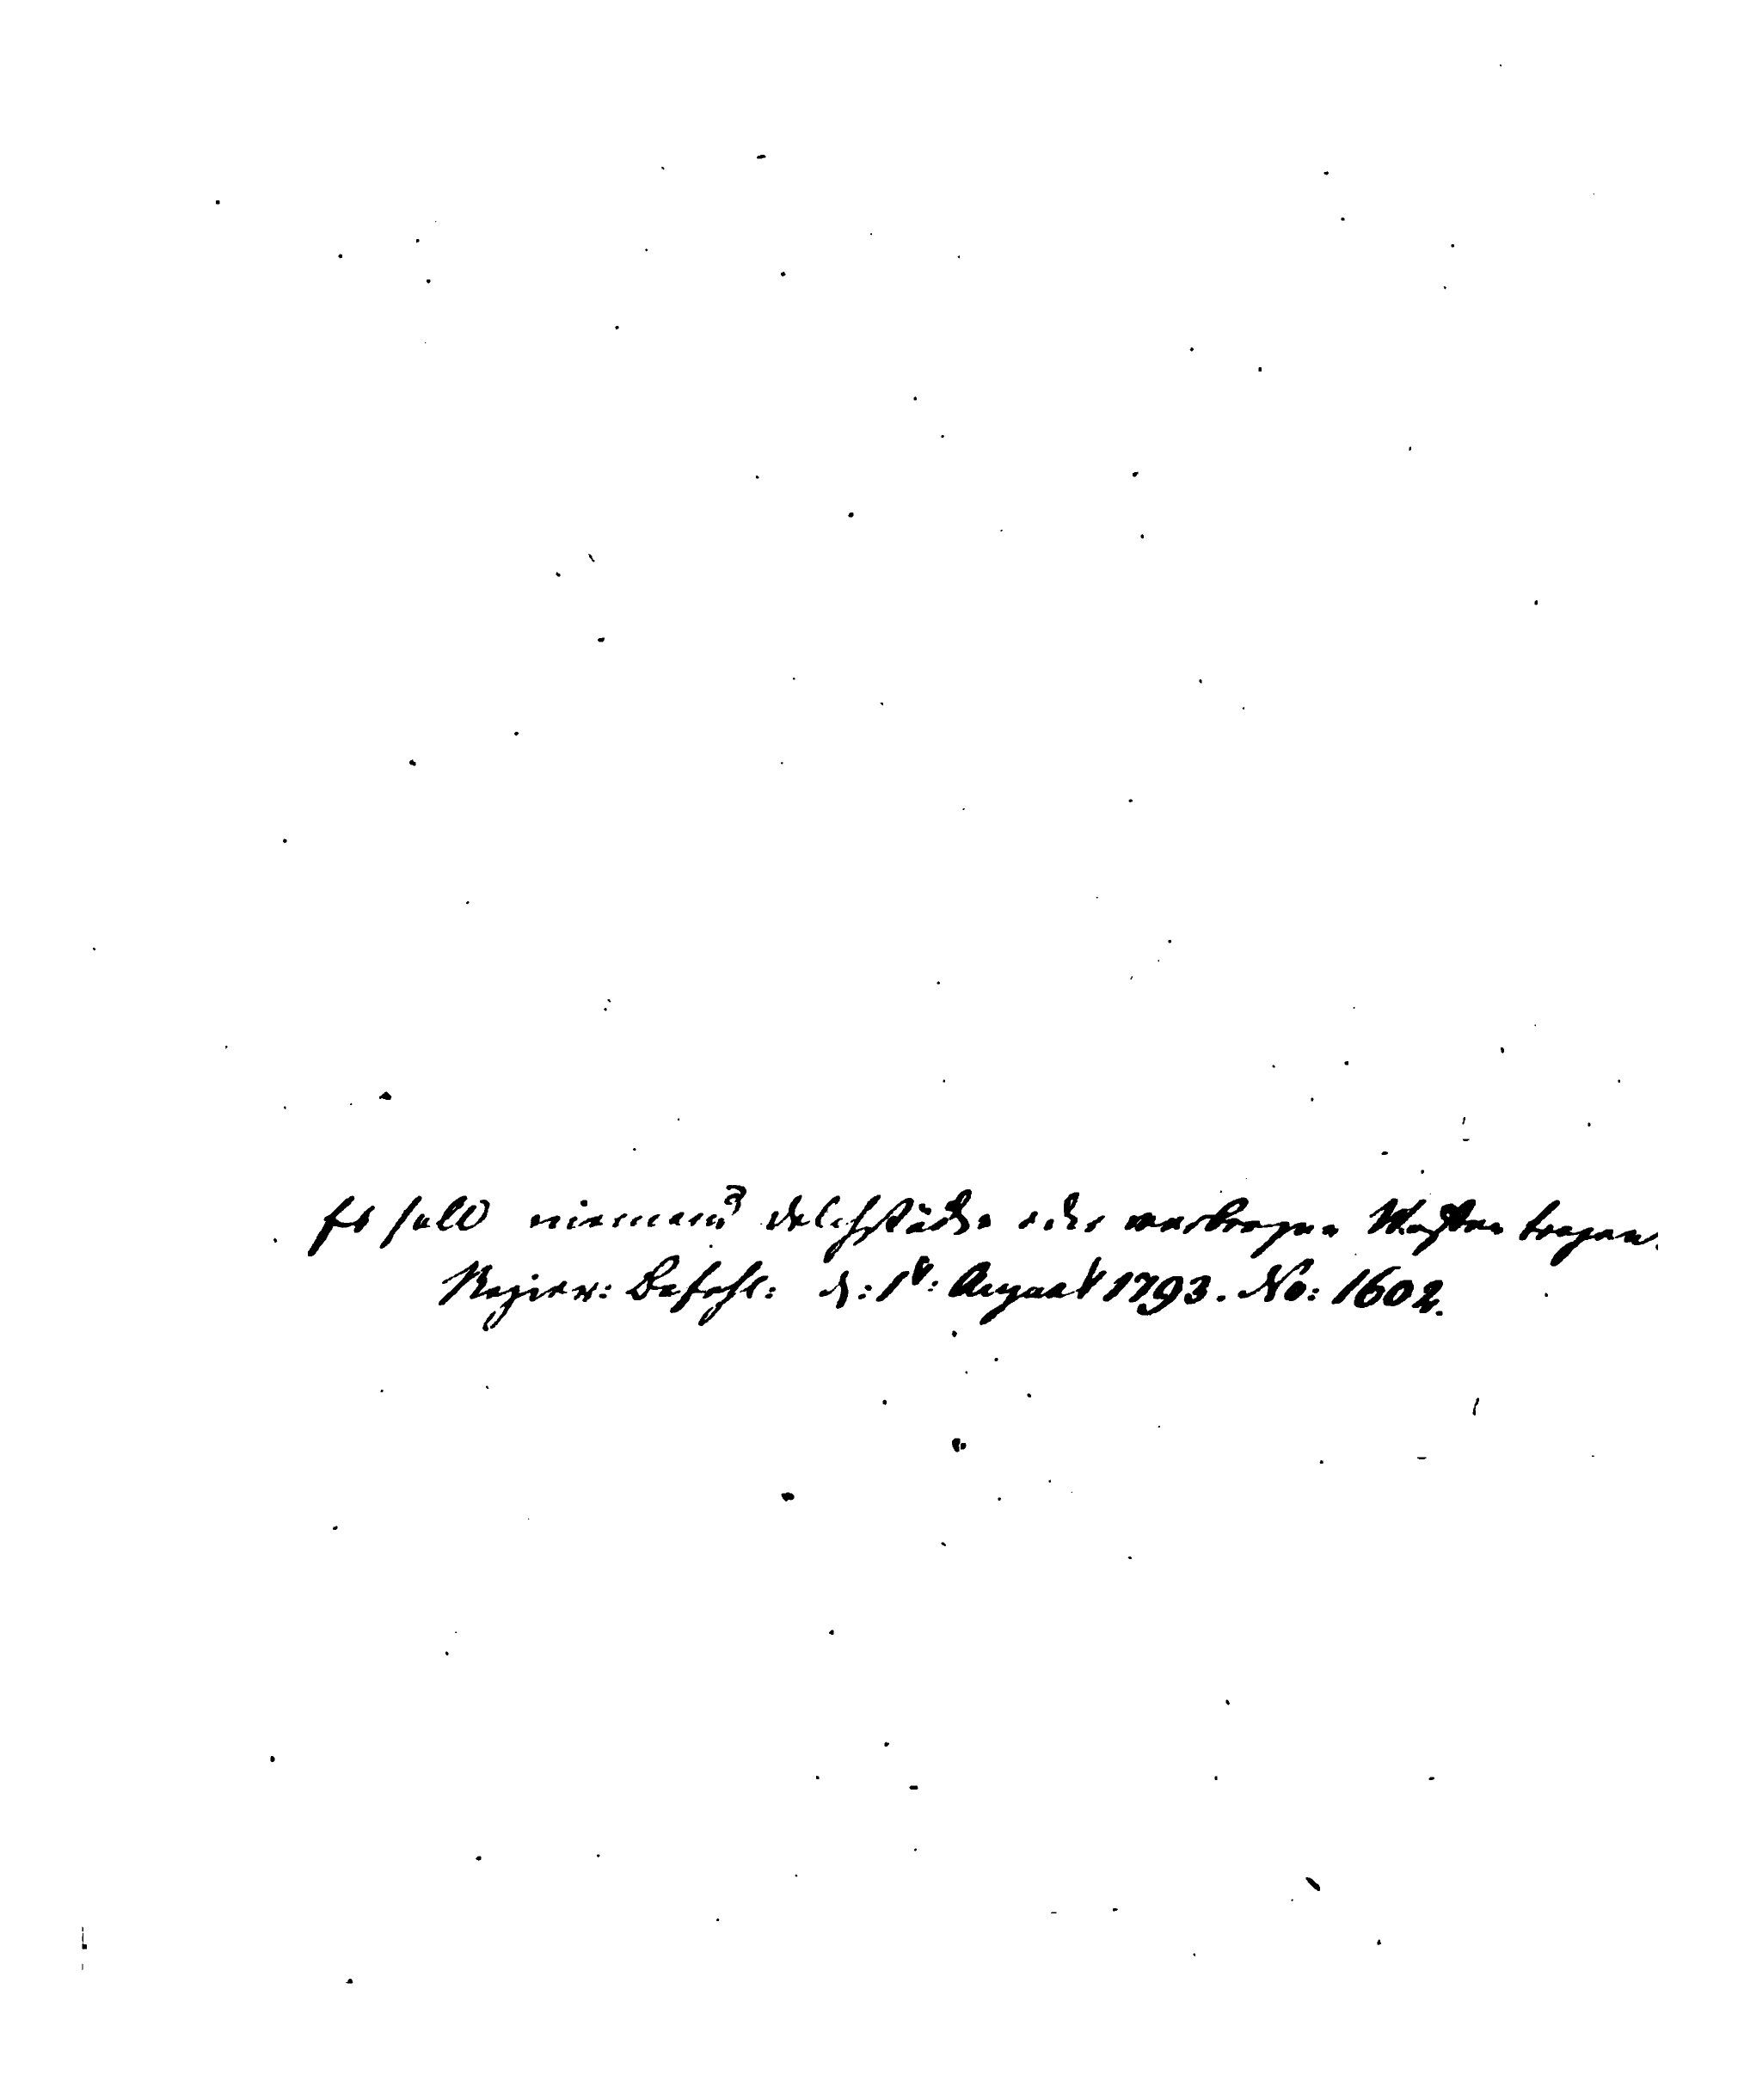 Es soll niemand dolchstöcke oder verborgene Waffen tragen.
Regier: Befehl: d: 1t: August 1793. No: 1602.